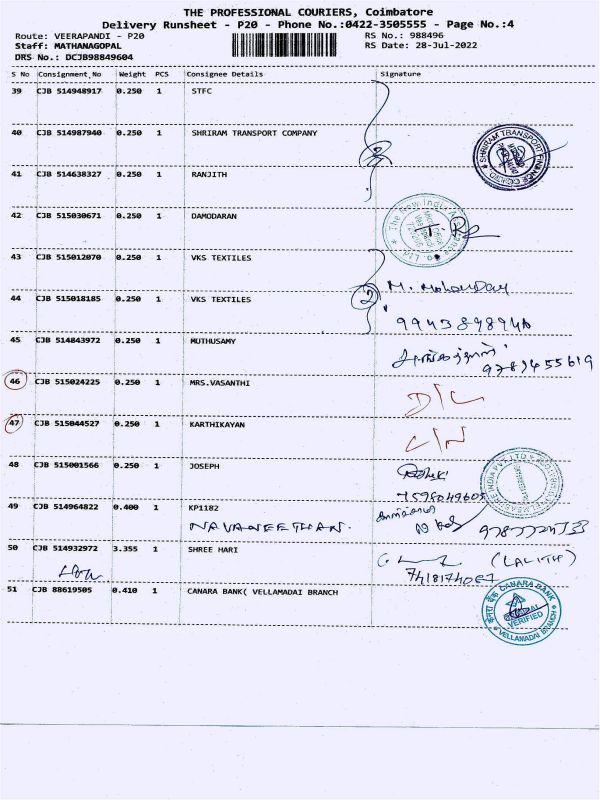 THE PROFESSIONAL COURIERS, Coimbatore
Delivery Runsheet - P20 - Phone No.:0422-3505555 - Page No.:4
Route: VEERAPANDI - P20 RS No.: 988496
Staff: MATHANAGOPAL RS Date: 28-Jul-2022
DRS No.: DCJB98849604
S No Consignment No Weight PCS Consignee Details Signature
39 CJB 514948917 0.250 1 STFC
40 CJB 514987940 0.250 1 SHRIRAM TRANSPORT COMPANY
SHRIRAM TRANSPORT FINANCE
41 CJB 514638327 0.250 1 RANJITH
42 CJB 515030671 0.250 1 DAMODARAN
The New India Assurance Co. Ltd.
43 CJB 515012070 0.250 1 VKS TEXTILES
44 CJB 515018185 0.250 1 VKS TEXTILES
2
45 CJB 514843972 0.250 1 MUTHUSAMY
9789455619
46 CJB 515024225 0.250 1 MRS.VASANTHI
D/L
47 CJB 515044527 0.250 1 KARTHIKAYAN
C/N
48 CJB 515001566 0.250 1 JOSEPH
7598049605
49 CJB 514964822 0.400 1 KP1182
NAVANEETHAN.
50 CJB 514932972 3.355 1 SHREE HARI
(LALITH)
51 CJB 88619505 0.410 1 CANARA BANK( VELLAMADAI BRANCH
CANARA BANK
VERIFIED
VELLAMADAI BRANCH